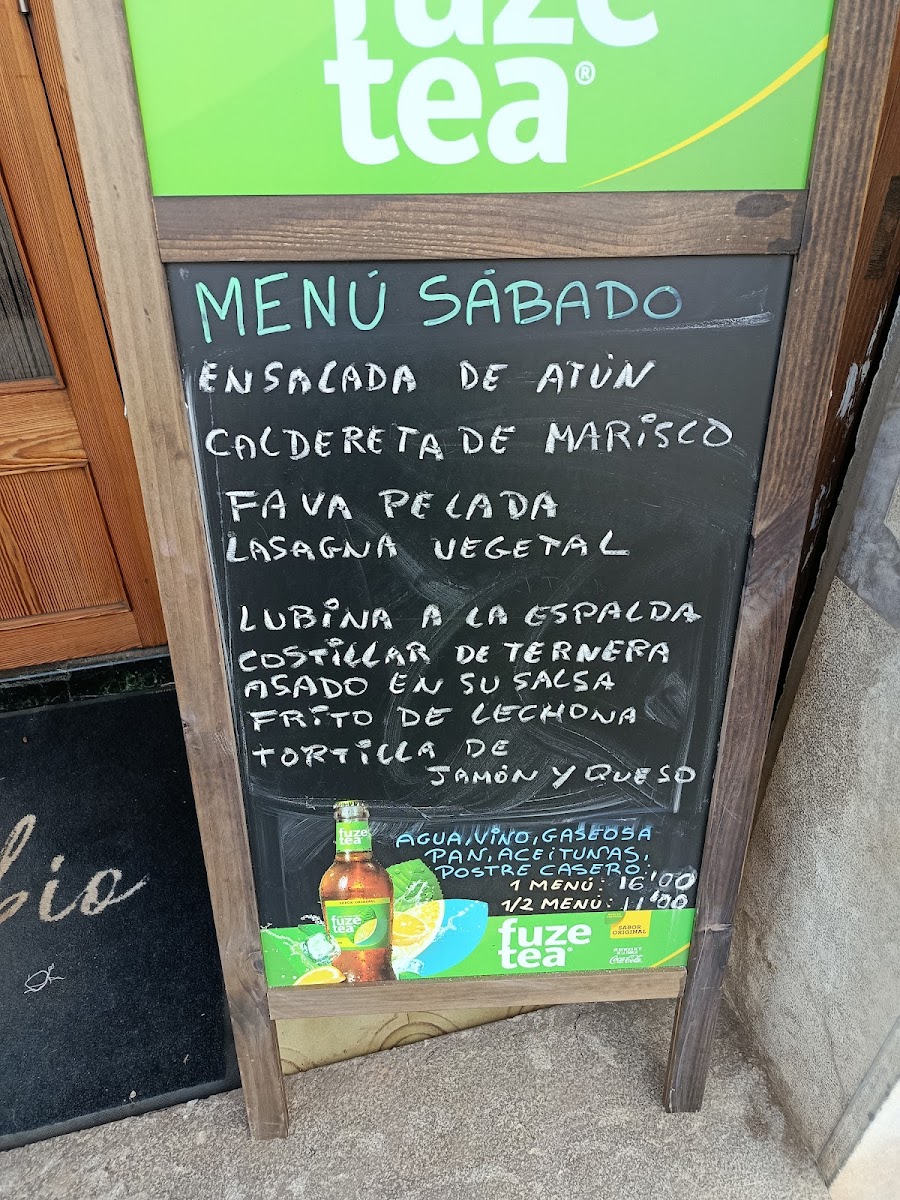 fuze
tea®
MENÚ SÁBADO
ENSALADA DE ATÚN
CALDERETA DE MARISCO
FAVA PELADA
LASAGNA VEGETAL
LUBINA A LA ESPALDA
COSTILLAR DE TERNERA
ASADO EN SU SALSA
FRITO DE LECHONA
TORTILLA DE
JAMÓN Y QUESO
AGUA, VINO, GASEOSA
PAN, ACEITUNAS,
POSTRE CASERO.
1 MENÚ: 16'00
1/2 MENÚ: 11'00
fuze
tea
fuze
tea
fuze
tea
SABOR
ORIGINAL
Coca-Cola
bio